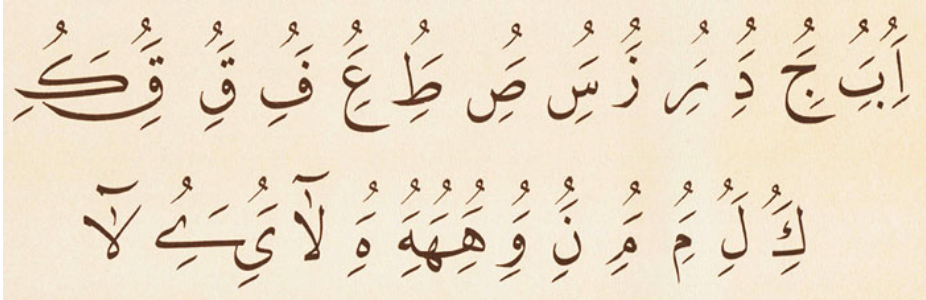 اَُِ بَُِ جَُِ دَُِ رَُِ زَُ سَُِ صُِ طَُ عَُِ فَُ قَُِ قَُِ كَُِ
كَُِ لَُِ مَُِ مَُِ نَُِ وَُِ هَُِهَُهَُِ هَُِ لآ يَُِ ےَُِ لآ